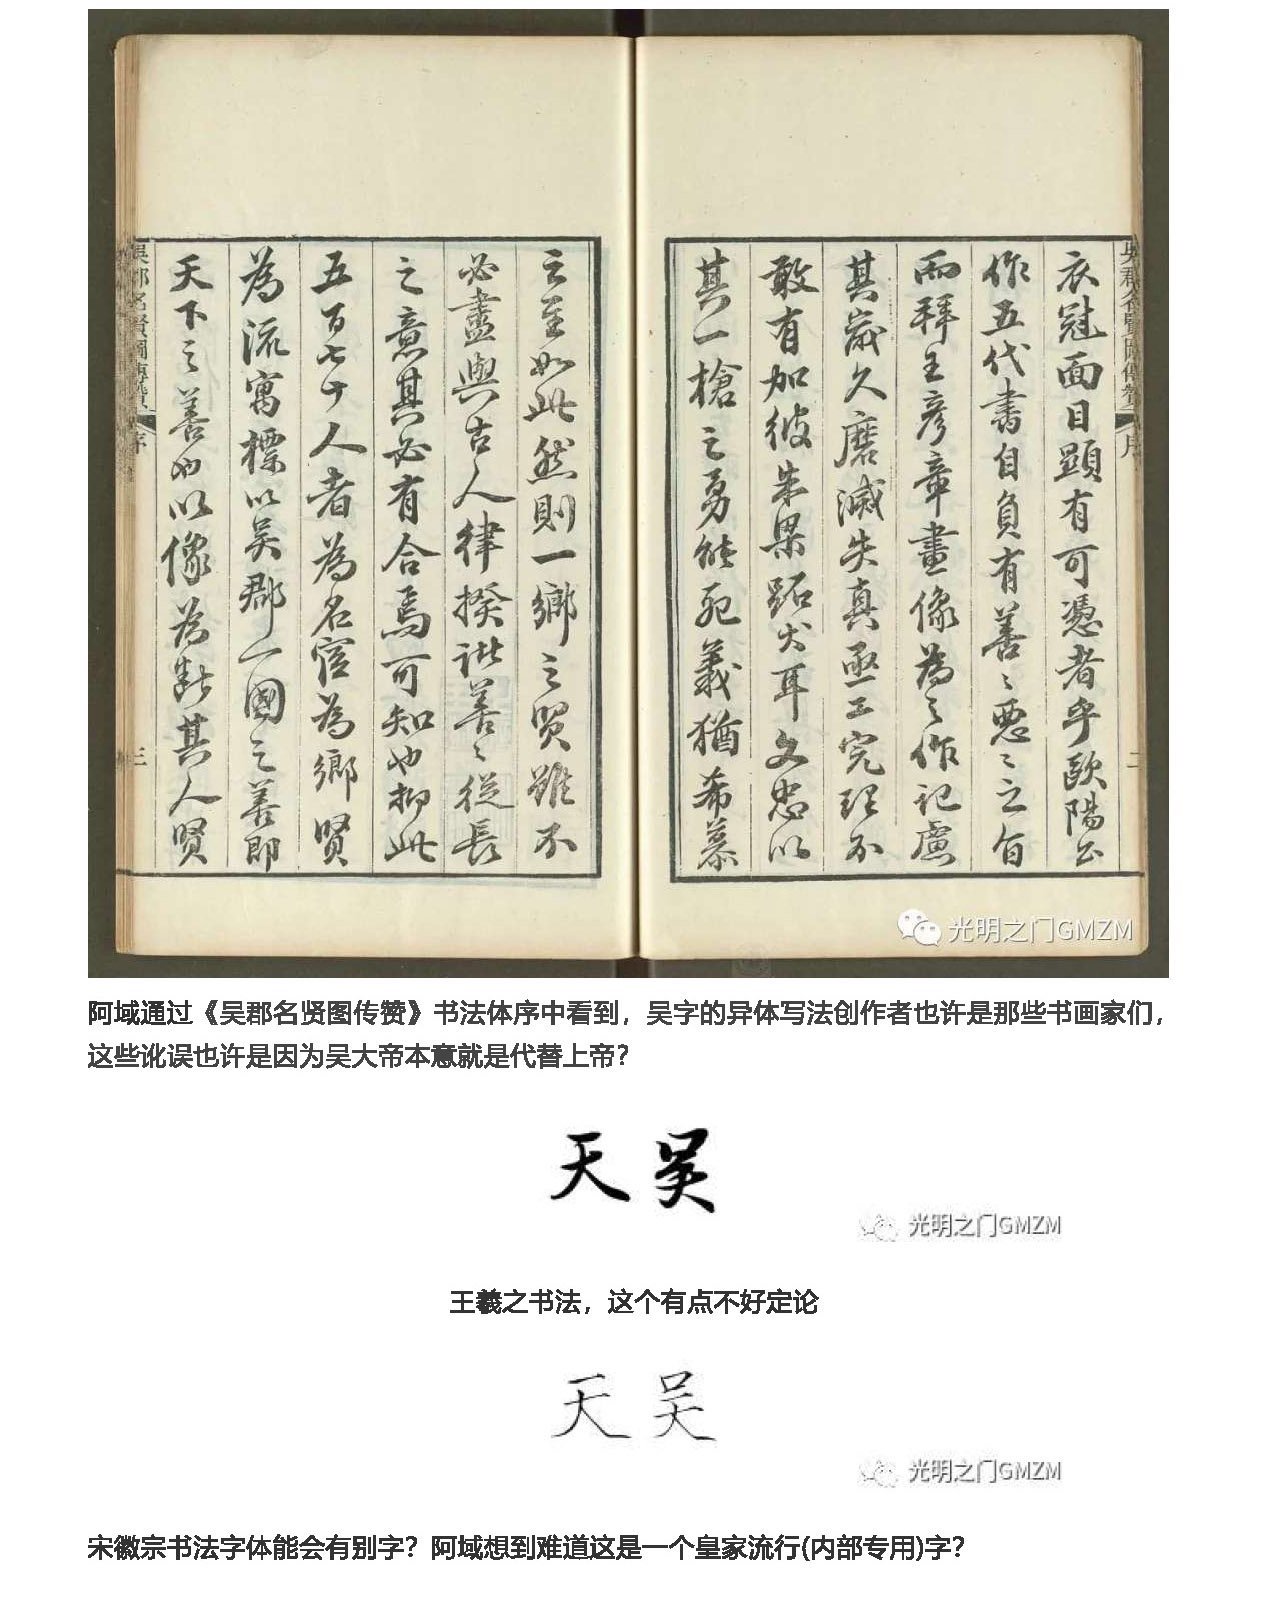 吳郡名賢圖傳贊 序
二
衣冠面目顯有可憑者乎歐陽公
作五代書自負有善善惡惡之旨
而拜王彥章畫像為之作記慮
其歲久磨滅失真亟工完理不
敢有加彼朱梁跖犬耳文忠以
其一槍之勇能死義猶希慕
之至如此然則一鄉之賢雖不
必盡與古人律揆諸善善從長
之意其必有合焉可知也抑此
五百七十人者為名宦為鄉賢
為流寓標以吳郡一國之善即
天下之善也以像為斷其人賢
吳郡名賢圖傳贊 序
三
光明之门GMZM
阿域通过《吴郡名贤图传赞》书法体序中看到，吴字的异体写法创作者也许是那些书画家们，
这些讹误也许是因为吴大帝本意就是代替上帝？
天吴
光明之门GMZM
王羲之书法，这个有点不好定论
天吴
光明之门GMZM
宋徽宗书法字体能会有别字？阿域想到难道这是一个皇家流行(内部专用)字？